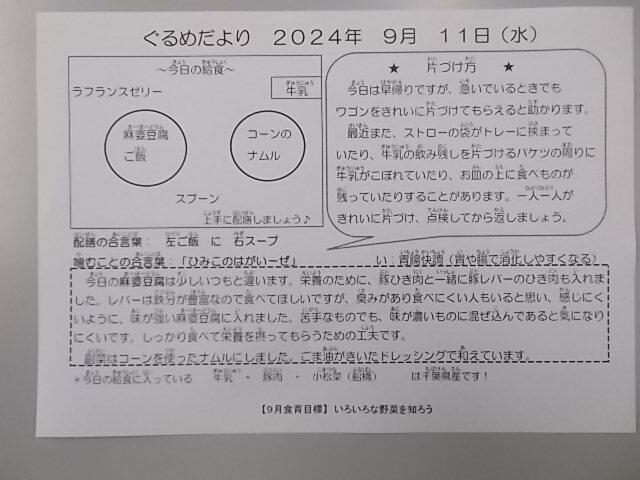 ぐるめだより　2024年　9月　11日（水）
～今日の給食～
ラフランスゼリー
牛乳
麻婆豆腐
ご飯
コーンの
ナムル
スプーン
上手に配膳しましょう♪
★　片づけ方　★
今日は早帰りですが、急いでいるときでも
ワゴンをきれいに片づけてもらえると助かります。
最近また、ストローの袋がトレーに挟まって
いたり、牛乳の飲み残しを片づけるバケツの周りに
牛乳がこぼれていたり、お皿の上に食べものが
残っていたりすることがあります。一人一人が
きれいに片づけ、点検してから返しましょう。
配膳の合言葉：　左ご飯　に　右スープ
噛むことの合言葉：「ひみこのはがいーぜ」　　い：胃腸快調（胃や腸で消化しやすくなる）
今日の麻婆豆腐は少しいつもと違います。栄養のために、豚ひき肉と一緒に豚レバーのひき肉も入れ
ました。レバーは鉄分が豊富なので食べてほしいですが、臭みがあり食べにくい人もいると思い、感じにく
いように、味が強い麻婆豆腐に入れました。苦手なものでも、味が濃いものに混ぜ込んであると気になり
にくいです。しっかり食べて栄養を摂ってもらうための工夫です。
副菜はコーンを使ったナムルにしました。ごま油がきいたドレッシングで和えています。
＊今日の給食に入っている　牛乳　・　豚肉　・　小松菜（船橋）　は千葉県産です！
【9月食育目標】いろいろな野菜を知ろう